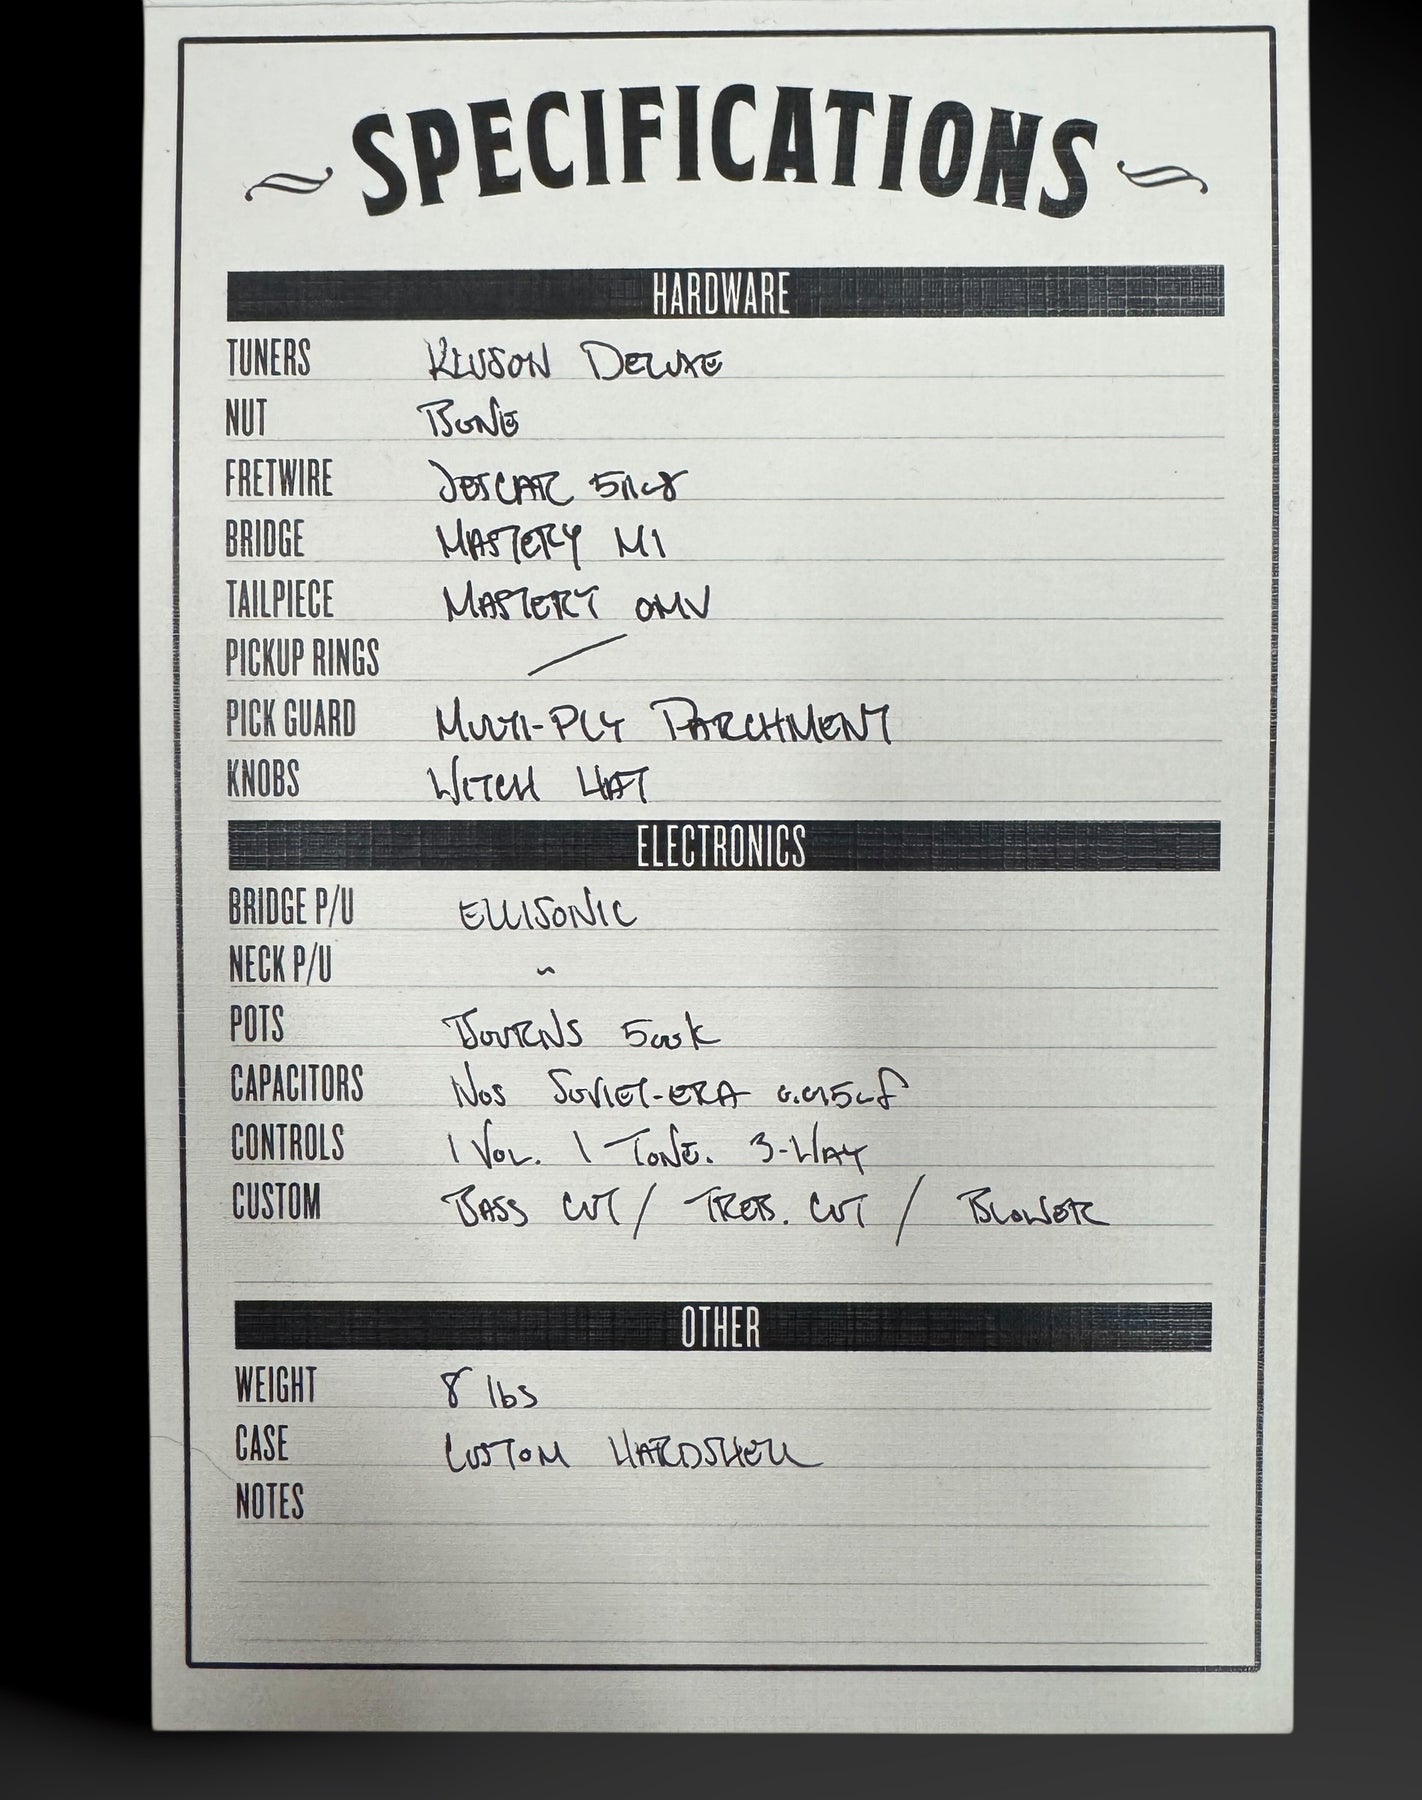 SPECIFICATIONS
HARDWARE
TUNERS KLUSON DELUXE
NUT BONE
FRETWIRE JESCAR
BRIDGE MASTERY M1
TAILPIECE MASTERY OMV
PICKUP RINGS /
PICK GUARD MULTI-PLY PARCHMENT
KNOBS WITCH HAT
ELECTRONICS
BRIDGE P/U ELLISONIC
NECK P/U ~
POTS BOURNS 500k
CAPACITORS NOS SOVIET-ERA 0.015uf
CONTROLS 1 VOL. 1 TONE. 3-WAY
CUSTOM BASS CUT / TREB. CUT / BLOWER
OTHER
WEIGHT 8 lbs
CASE CUSTOM HARDSHELL
NOTES